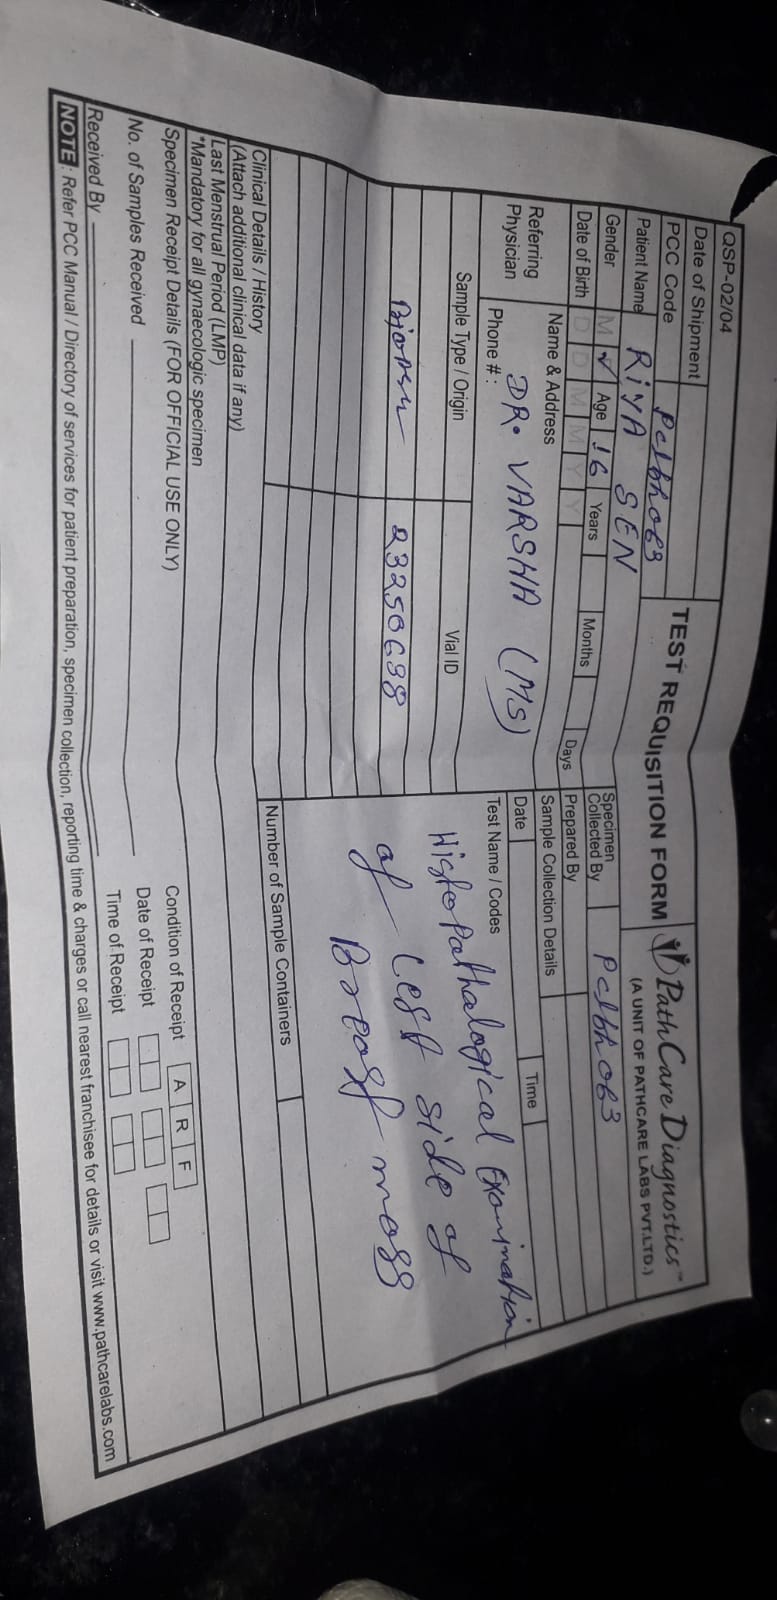 QSP-02/04
TEST REQUISITION FORM
PathCare Diagnostics™
(A UNIT OF PATHCARE LABS PVT.LTD.)
Date of Shipment
PCC Code Pclbh063
Patient Name RiYA SEN
Gender M ✓ Age 16 Years Months Days
Date of Birth D D M M Y Y
Specimen Collected By Pclbh063
Prepared By
Sample Collection Details
Date Time
Referring Physician
Name & Address
DR. VARSHA (MS)
Phone # :
Test Name / Codes
Histopathalogical Examination
of Left side of
Breast mass
Sample Type / Origin Vial ID
23250698
Number of Sample Containers
Clinical Details / History
(Attach additional clinical data if any)
Last Menstrual Period (LMP)
*Mandatory for all gynaecologic specimen
Specimen Receipt Details (FOR OFFICIAL USE ONLY)
No. of Samples Received
Received By
Condition of Receipt A R F
Date of Receipt
Time of Receipt
NOTE : Refer PCC Manual / Directory of services for patient preparation, specimen collection, reporting time & charges or call nearest franchisee for details or visit www.pathcarelabs.com